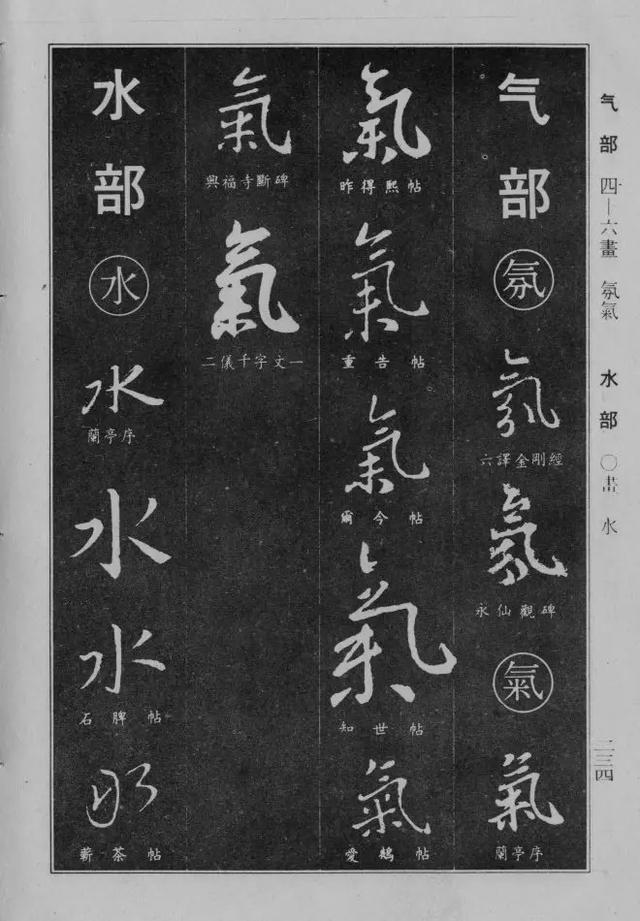 气部 四—六畫 氛氣 水部 〇畫 水
二三四
气部
氛
氛
六譯金剛經
氛
永仙觀碑
氣
氣
蘭亭序
氣
昨得熙帖
氣
重告帖
氣
爾今帖
氣
知世帖
氣
愛鵝帖
氣
興福寺斷碑
氣
二儀千字文一
水部
水
水
蘭亭序
水
水
石脾帖
水
蘄茶帖